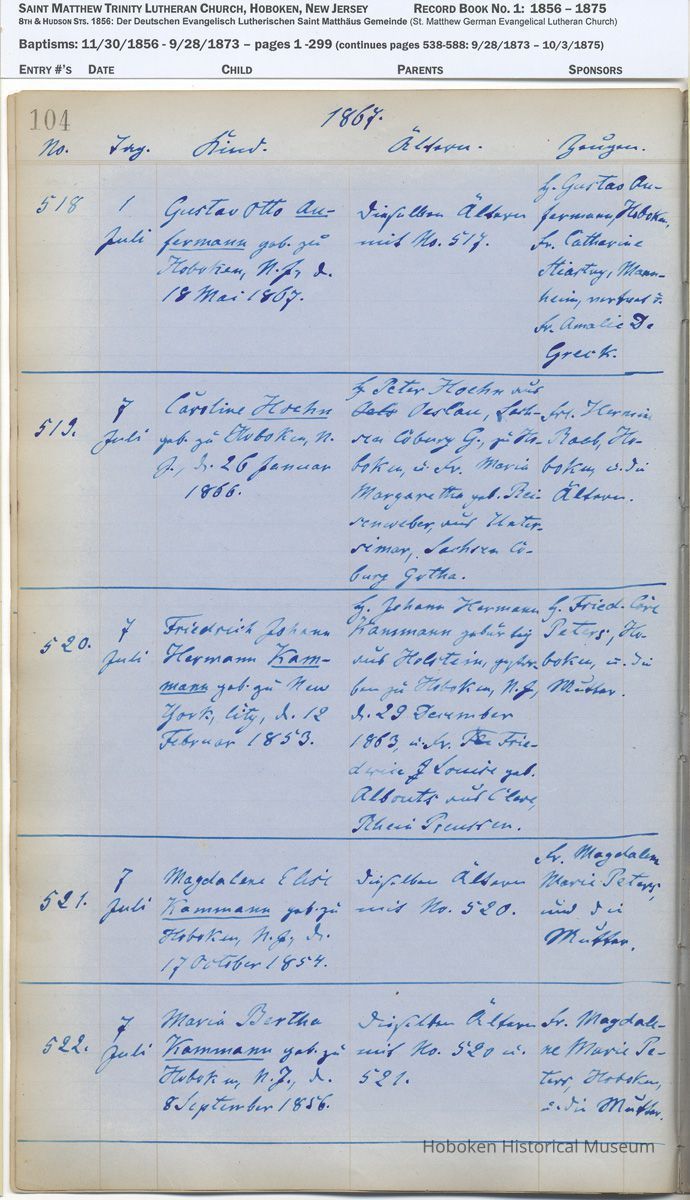 SAINT MATTHEW TRINITY LUTHERAN CHURCH, HOBOKEN, NEW JERSEY RECORD BOOK NO. 1: 1856 – 1875
8TH & HUDSON STS. 1856: Der Deutschen Evangelisch Lutherischen Saint Matthäus Gemeinde (St. Matthew German Evangelical Lutheran Church)
Baptisms: 11/30/1856 - 9/28/1873 – pages 1 -299 (continues pages 538-588: 9/28/1873 – 10/3/1875)
ENTRY #'S DATE CHILD PARENTS SPONSORS
104
1867.
No. Tag. Kind. Ältern. Zeugen.
518
1
Juli
Gustav Otto An-
fermann geb. zu
Hoboken, N.J., d.
18 Mai 1867.
Dieselben Ältern
mit No. 517.
H. Gustav An-
fermann, Hoboken,
Fr. Catharine
Mann-
heim,
Fr. Amalie De
Greck.
519.
7
Juli
Caroline Hoehn
geb. zu Hoboken, N.
J., d. 26 Januar
1866.
H. Peter Hoehn aus
Oeslau, Sach-
sen Coburg G., zu Ho-
boken, u. Fr. Maria
Margaretha geb. Rei-
senweber, aus Unter-
simar, Sachsen Co-
burg Gotha.
Raab, Ho-
boken, u. die
Ältern.
520.
7
Juli
Friedrich Johann
Hermann Kam-
mann geb. zu New
York, City, d. 12
Februar 1853.
H. Johann Hermann
Kammann gebürtig
aus Holstein, gestor-
ben zu Hoboken, N.J.,
d. 29 December
1863, u. Fr. Frie-
derice Louise geb.
Albouts aus Cleve,
Rhein Preussen.
H. Fried. Carl
Peters, Ho-
boken, u. die
Mutter.
521.
7
Juli
Magdalene Elise
Kammann geb. zu
Hoboken, N.J., d.
17 October 1854.
Dieselben Ältern
mit No. 520.
Fr. Magdalene
Marie Peters,
und die
Mutter.
522.
7
Juli
Maria Bertha
Kammann geb. zu
Hoboken, N.J., d.
8 September 1856.
Dieselben Ältern
mit No. 520 u.
521.
Fr. Magdale-
ne Marie Pe-
ters, Hoboken,
u. die Mutter.
Hoboken Historical Museum